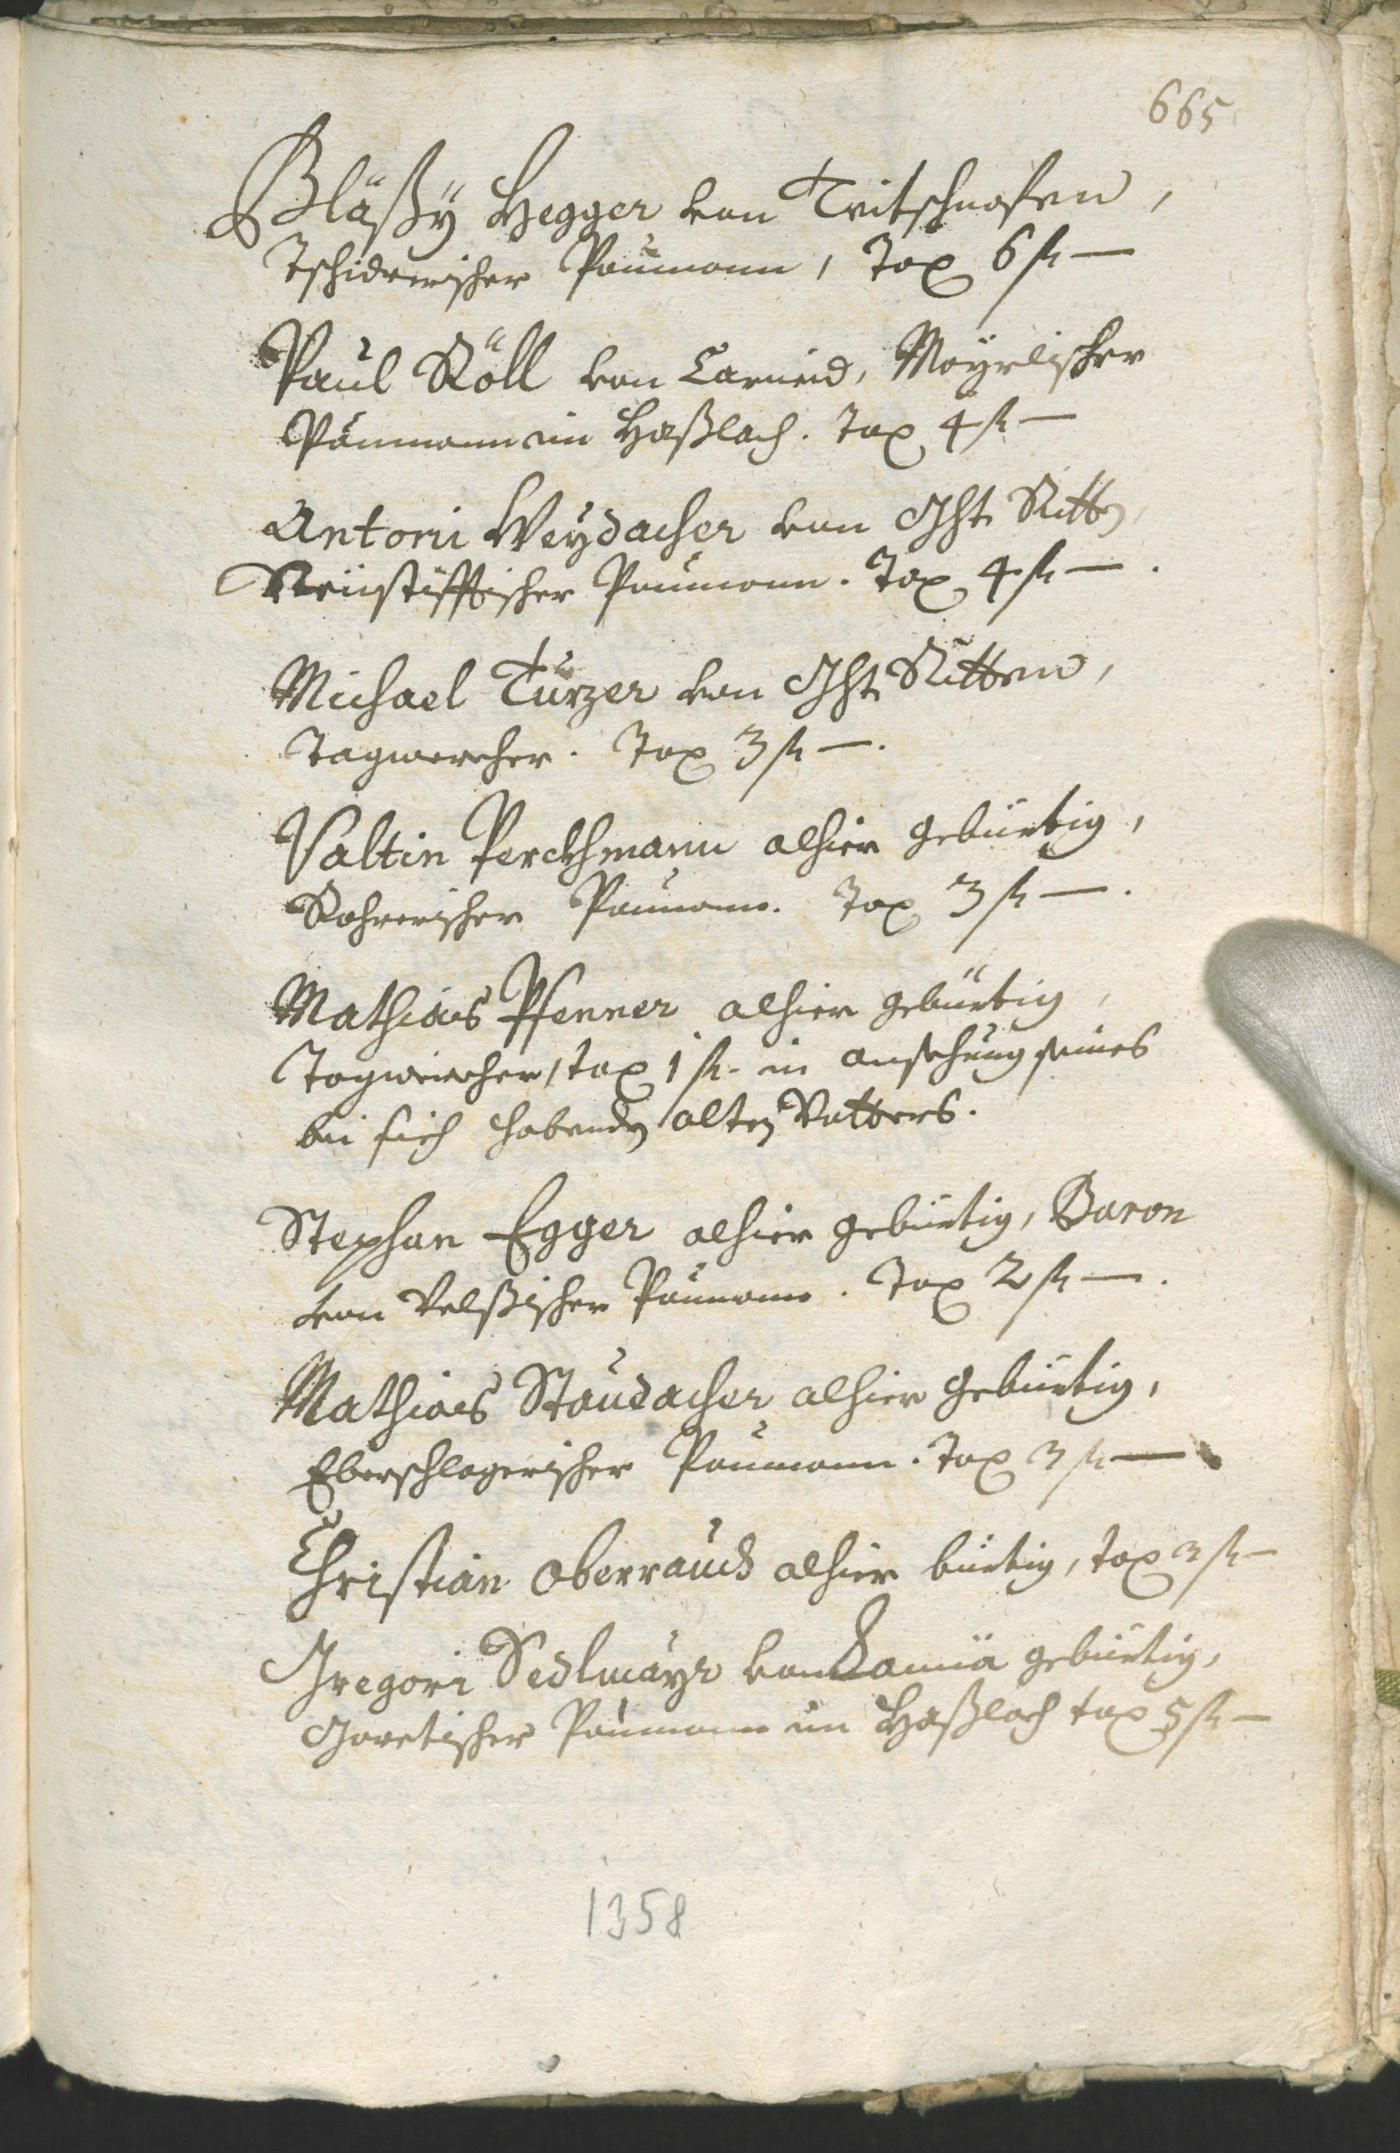 665
Bläßy Hegger von Teitschnofen,
Tschiderischer Paumann, Tax 6 fl —
Paul Röll von Carneid, Mayrlischer
Paumann im Haßlach. Tax 4 fl —
Antoni Weydacher von Ght Ritten,
Neustifftischer Paumann. Tax 4 fl —.
Michael Turzer von Ghts Ritten,
Tagwercher. Tax 3 fl —.
Valtin Perckhmann alhier gebürtig,
Rohrerischer Paumann. Tax 3 fl —.
Mathias Pfenner alhier gebürtig,
Tagwercher, tax 1 fl - in ansehung seines
bei sich habenden alten Vatters.
Stephan Egger alhier gebürtig, Baron
von Velßischer Paumann. Tax 2 fl —.
Mathias Staudacher alhier gebürtig,
Eberschlagerischer Paumann. Tax 3 fl —
Christian Oberrauch alhier bürtig, tax 3 fl —
Gregori Sedlmayr von gebürtig,
Paumann im Haßlach tax 5 fl —
1358